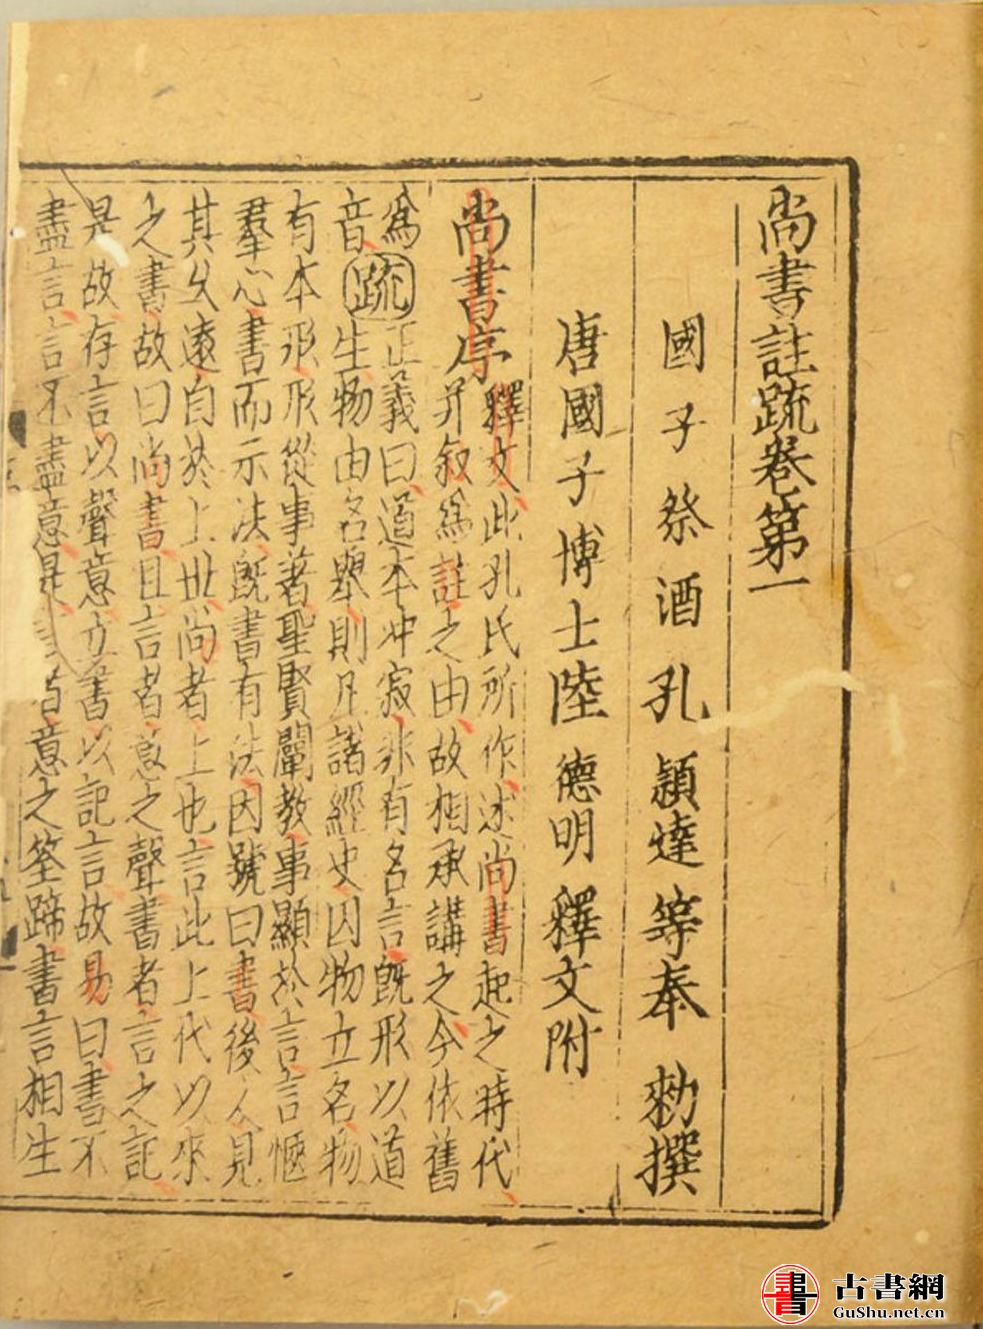 尚書註疏卷第一
國子祭酒孔穎達等奉敕撰
唐國子博士陸德明釋文附
尚書序
釋文此孔氏所作述尚書起之時代
并叙爲註之由故相承講之今依舊
爲
音疏正義曰道本沖寂非有名言旣形以道
生物由名舉則凡諸經史因物立名物
有本形形從事著聖賢闡教事顯於言言愜
羣心書而示法旣書有法因號曰書後人見
其久遠自於上世尚者上也言此上代以來
之書故曰尚書且言者意之聲書者言之記
是故存言以聲意立書以記言故易曰書不
盡言言不盡意是 言者意之筌蹄書言相生
書 古書網
GuShu.net.cn